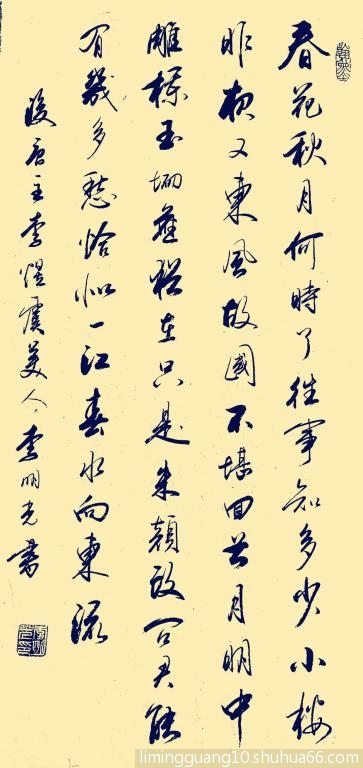 春花秋月何時了往事知多少小楼
昨夜又東風故國不堪回首月明中
雕欄玉砌應猶在只是朱顏改问君能
有幾多愁恰似一江春水向東流
後唐主李煜虞美人 李明光書
limingguang10.shuhua66.com